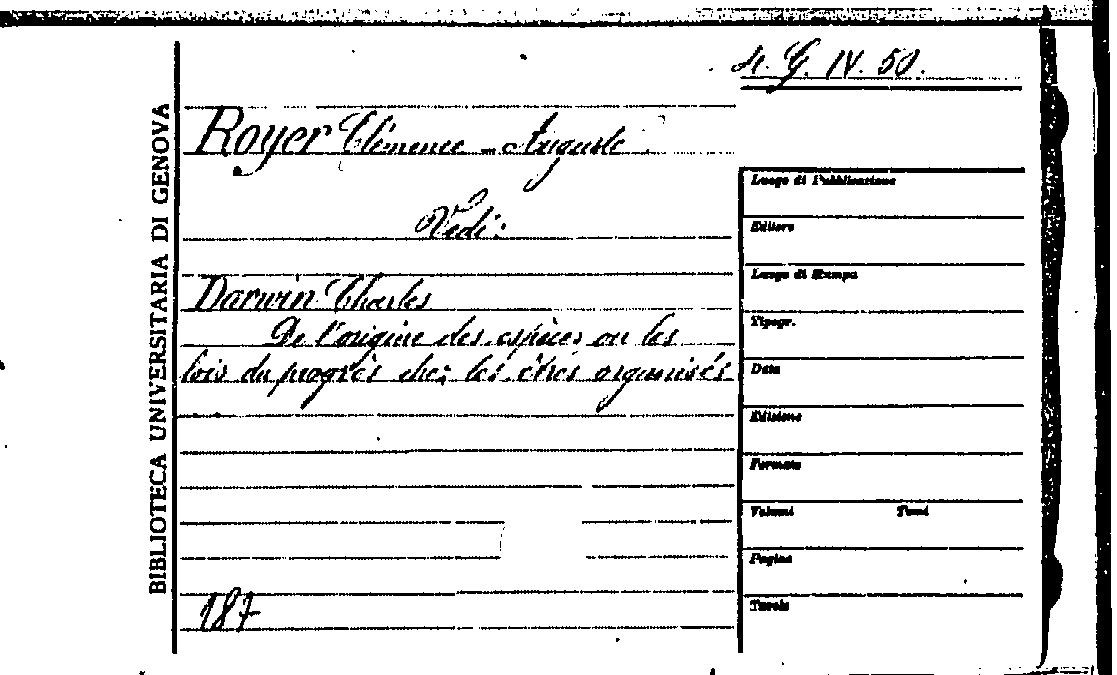 4. G. IV. 50.
Royer Clémence-Auguste
Vedi:
Darwin Charles
De l'origine des espèces ou les
lois du progrès chez les êtres organisés
187
BIBLIOTECA UNIVERSITARIA DI GENOVA
Luogo di Pubblicazione
Editore
Luogo di Stampa
Tipogr.
Data
Edizione
Formato
Volumi Tomi
Pagine
Tavole